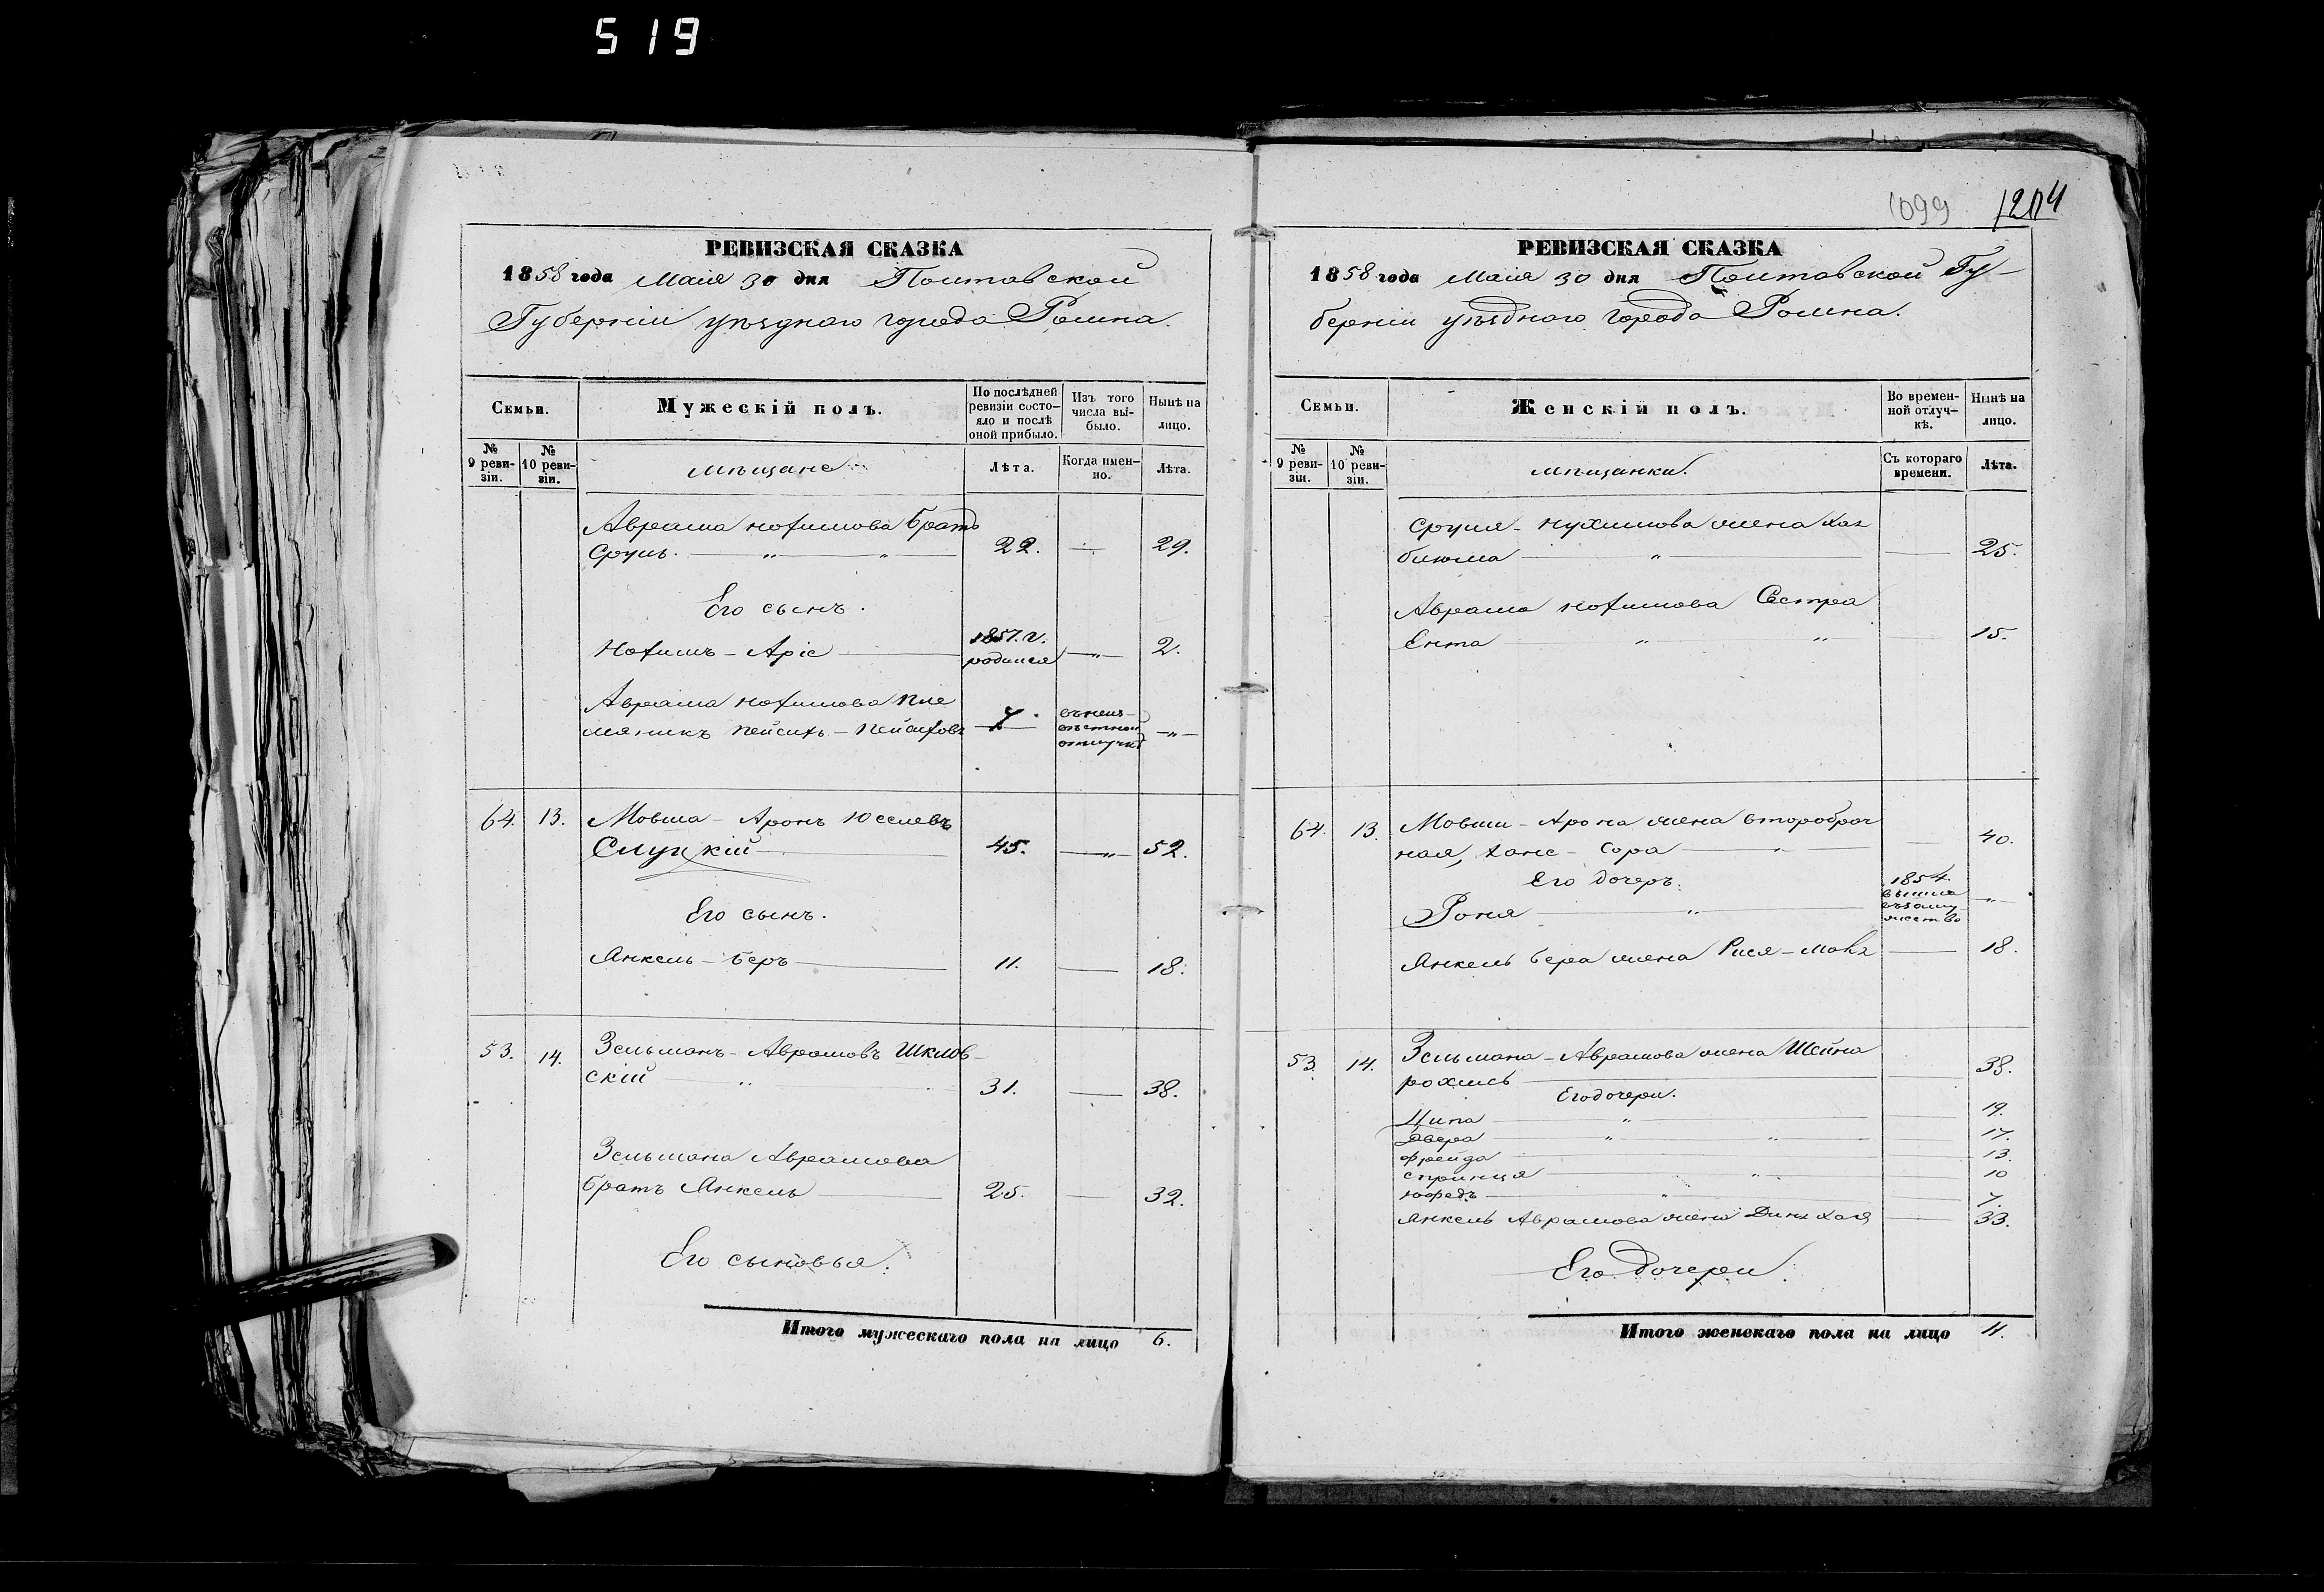 519
РЕВИЗСКАЯ СКАЗКА
1858 года Маія 30 дня Полтавской
Губерніи уѣзднаго города Ромна.
Семьи.
Мужескій полъ.
По послѣдней
ревизіи состо-
яло и послѣ
оной прибыло.
Изъ того
числа вы-
было.
Нынѣ на
лицо.
№
9 реви-
зіи.
№
10 реви-
зіи.
мѣщане
Лѣта.
Когда имен-
но.
Лѣта.
Аврама Нохимова братъ
Сруль 22. 29.
Его сынъ.
Нохимъ-Аріе 1857. г.
родился 2.
Аврама Нохимова пле
мяникъ Пейсихъ-Пейсахов 7. въ неиз-
вѣстной
отлучкѣ
64. 13. Мовша-Аронъ Юселевъ
Слуцкій 45. 52.
Его сынъ.
Янкель-Беръ 11. 18.
53. 14. Зельманъ-Аврамовъ Шклов-
скій 31. 38.
Зельмана Аврамова
братъ Янкель 25. 32.
Его сыновья.
Итого мужескаго пола на лицо 6.
1099 1204
РЕВИЗСКАЯ СКАЗКА
1858 года Маія 30 дня Полтавской Гу-
берніи уѣзднаго города Ромна.
Семьи.
Женскій полъ.
Во времен-
ной отлуч-
кѣ.
Нынѣ на
лицо.
№
9 реви-
зіи.
№
10 реви-
зіи.
мѣщанки.
Съ котораго
времени.
Лѣта.
Сруля-Нухимова жена Хая
блюма 25.
Аврама Нохимова Сестра
Ента 15.
64. 13. Мовши-Арона жена второбрач
ная, Хане-Сора 40.
Его дочерь.
Роня 1854.
вышла
въ заму-
жество
Янкель Бера жена Рися- 18.
53. 14. Зельмана-Аврамова жена Шейна
рохель 38.
Его дочери.
Ципа 19.
Двера 17.
Фрейда 13.
Спринця 10
Юфедъ 7.
Янкель Аврамова жена Дина Хая 33.
Его дочери.
Итого женскаго пола на лицо 11.